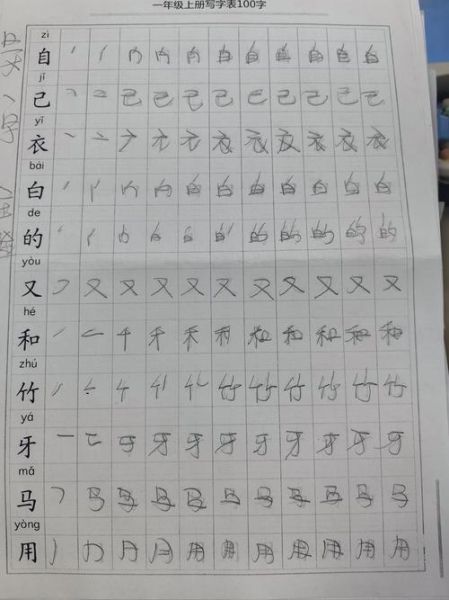 一年级上册写字表100字
zì
自 丿 亻 冂 自 自 自 自 自 自 自
jǐ
己 ㇕ コ 己 己 己 己 己 己 己 己
yī
衣 丶 亠 衣 衣 衣 衣 衣
bái
白 丿 亻 白 白 白 白 白 白 白
de
的 丿 亻 白 白 的 的 的 的 的
yòu
又 ㇇ 又 又 又 又 又 又 又 又 又 又
hé
和 丿 二 千 禾 和 和 和 和 和
zhú
竹 丿 𠂉 竹 竹 竹 竹 竹 竹 竹
yá
牙 一 牙 牙 牙 牙 牙 牙 牙 牙 牙
mǎ
马 ㇕ 马 马 马 马 马 马 马 马 马 马
yòng
用 丿 冂 月 月 用 用 用 用 用 用 用